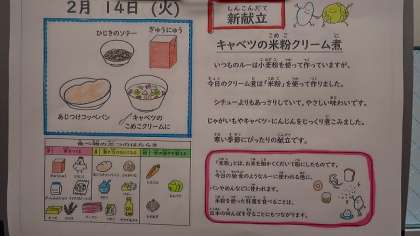 2月 14日 (火)
ひじきのソテー
ぎゅうにゅう
あじつけコッペパン
キャベツの
こめこクリームに
しんこんだて
新献立
キャベツの米粉クリーム煮
いつものルーは小麦粉を使って作っていますが、
今日のクリーム煮は「米粉」を使って作りました。
シチューよりもあっさりしていて、やさしい味わいです。
じゃがいもやキャベツ・にんじんをじっくり煮こみました。
寒い季節にぴったりの献立です。
「米粉」とは、お米を細かくくだいて粉にしたものです。
今日の給食のようなルーに使われる他に、
パンやめんなどに使われます。
米粉を使った料理を食べることは、
日本の田んぼを守ることにもつながります。